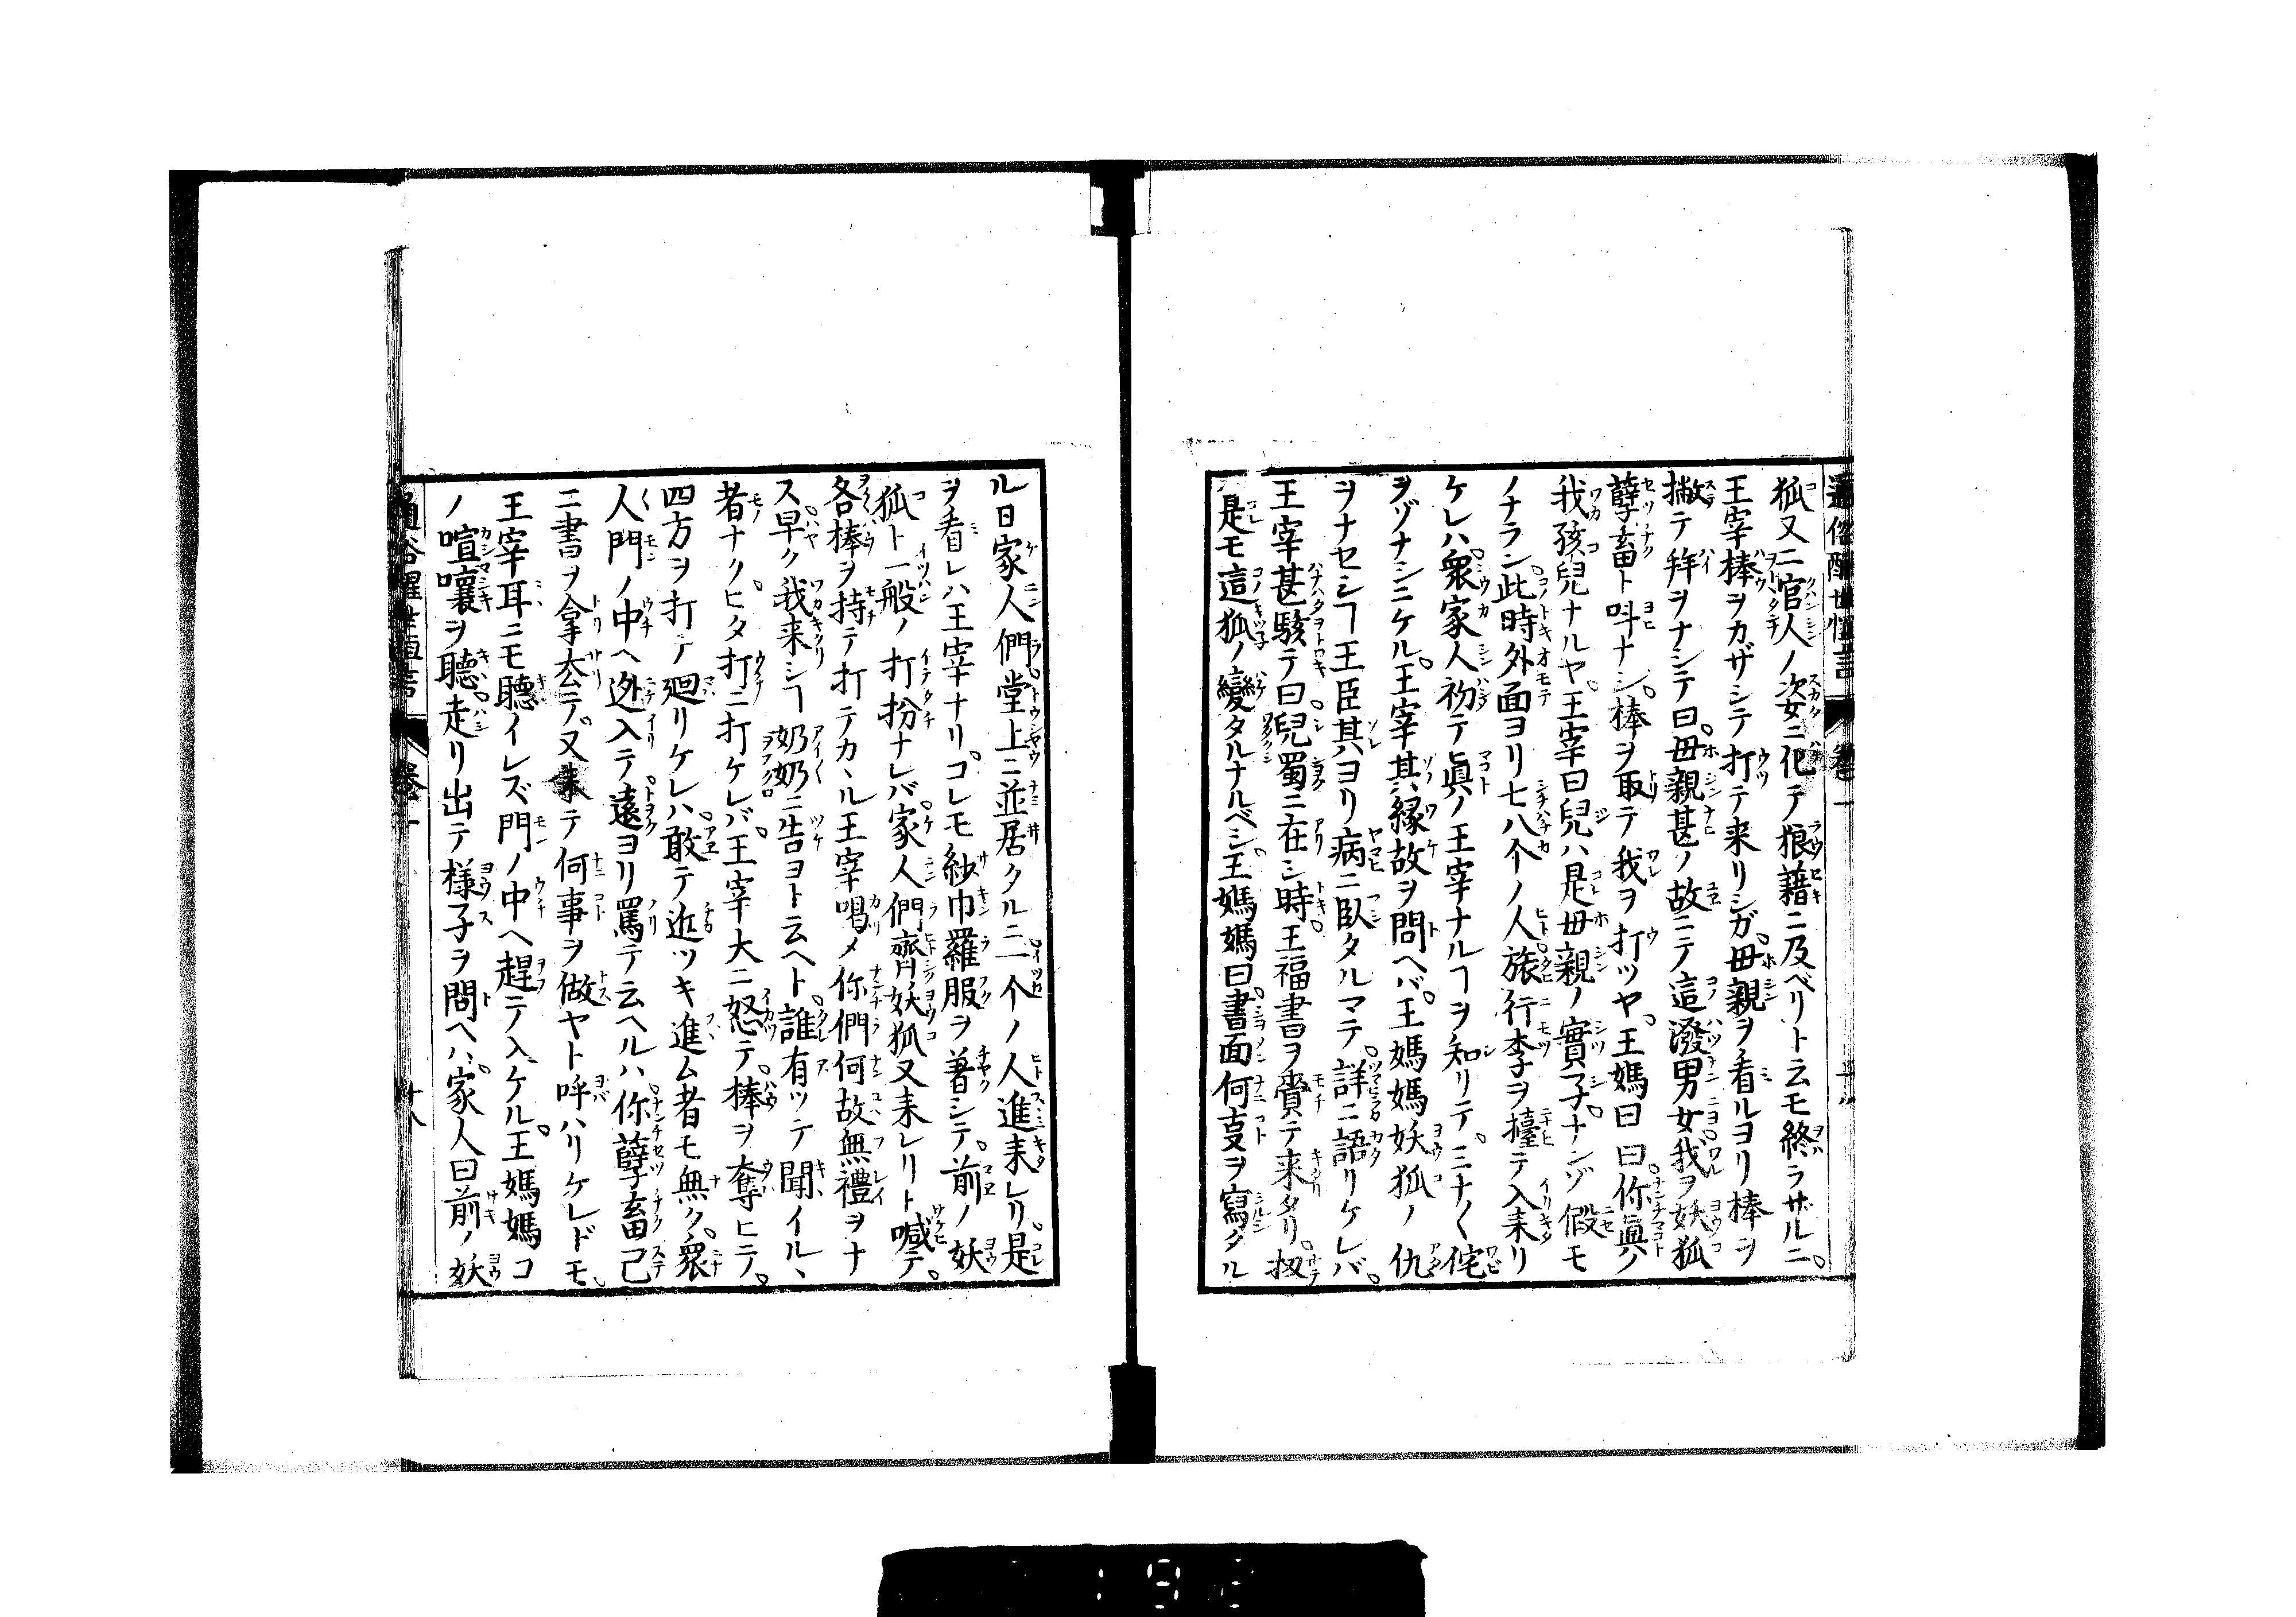 通俗醒世恒言 卷一
狐又二官人ノ姿ニ化テ狼藉ニ及ベリト云モ終ラザルニ。
王宰棒ヲカザシテ打テ来リシガ。母親ヲ看ルヨリ棒ヲ
撇テ拝ヲナシテ曰。母親甚ノ故ニテ這潑男女我ヲ妖狐
孽畜ト呌ナシ。棒ヲ取テ我ヲ打ツヤ。王媽曰曰。你眞ノ
我孩兒ナルヤ。王宰曰兒ハ是母親ノ實子。ナンゾ假モ
ノナラン此時外面ヨリ七八个ノ人旅行李ヲ擡テ入来リ
ケレハ。衆家人初テ眞ノ王宰ナルヿヲ知リテ。ミナ〱侘
ヲゾナシニケル。王宰其縁故ヲ問ヘバ。王媽媽妖狐ノ仇
ヲナセシヿ王臣其ヨリ病ニ臥タルマテ。詳ニ語リケレバ。
王宰甚駭テ曰。兒蜀ニ在シ時。王福書ヲ賷テ来タリ。扨
ハ是モ這狐ノ變タルナルベシ。王媽媽曰。書面何叓ヲ寫タル
ル日家人們。堂上ニ並居タルニ一个ノ人進来レリ。是
ヲ看レハ王宰ナリ。コレモ紗巾羅服ヲ著シテ。前ノ妖
狐ト一般ノ打扮ナレバ。家人們齊妖狐又来レリト喊テ。
各棒ヲ持テ打テカヽル王宰喝メ你們何故無禮ヲナ
ス。早ク我来シヿ奶奶ニ告ヨト云ヘト。誰有ッテ聞イルヽ
者ナク。ヒタ打ニ打ケレバ。王宰大ニ怒テ。棒ヲ奪ヒテ。
四方ヲ打テ廻リケレハ。敢テ近ツキ進ム者モ無ク。衆
人門ノ中ヘ迯入テ。遠ヨリ罵テ云ヘルハ。你孽畜己
ニ書ヲ拿去テ。又来テ何事ヲ做ヤト呼ハリケレドモ。
王宰耳ニモ聽イレズ門ノ中ヘ趕テ入ケル。王媽媽コ
ノ喧嚷ヲ聽。走リ出テ様子ヲ問ヘハ。家人曰前ノ妖
通俗醒世恒言 卷一 十八